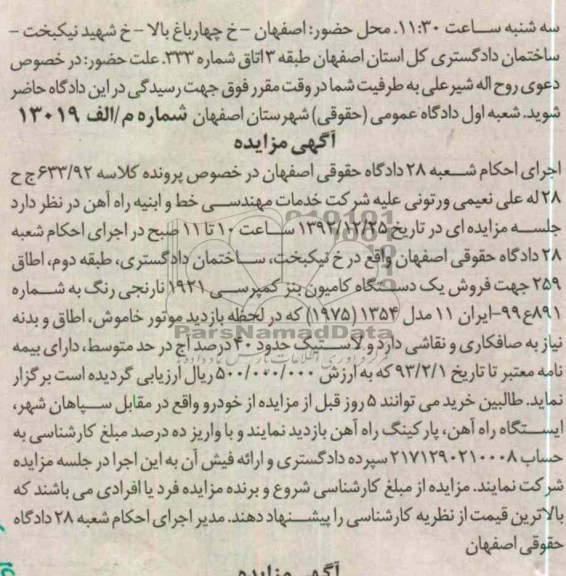 سه شنبه ساعت ۱۱:۳۰. محل حضور: اصفهان – خ چهارباغ بالا – خ شهید نیکبخت –
ساختمان دادگستری کل استان اصفهان طبقه ۳ اتاق شماره ۳۳۳. علت حضور: در خصوص
دعوی روح اله شیرعلی به طرفیت شما در وقت مقرر فوق جهت رسیدگی در این دادگاه حاضر
شوید. شعبه اول دادگاه عمومی (حقوقی) شهرستان اصفهان شماره م/الف ۱۳۰۱۹
آگهی مزایده
اجرای احکام شعبه ۲۸ دادگاه حقوقی اصفهان در خصوص پرونده کلاسه ۶۳۳/۹۲ج ح
۲۸ له علی نعیمی ورتونی علیه شرکت خدمات مهندسی خط و ابنیه راه آهن در نظر دارد
جلسه مزایده ای در تاریخ ۱۳۹۲/۱۲/۲۵ ساعت ۱۰ تا ۱۱ صبح در اجرای احکام شعبه
۲۸ دادگاه حقوقی اصفهان واقع در خ نیکبخت، ساختمان دادگستری، طبقه دوم، اطاق
۲۵۹ جهت فروش یک دستگاه کامیون بنز کمپرسی ۱۹۲۱ نارنجی رنگ به شماره
۸۹۱ع۹۹-ایران ۱۱ مدل ۱۳۵۴ (۱۹۷۵) که در لحظه بازدید موتور خاموش، اطاق و بدنه
ParsNamadData
نیاز به صافکاری و نقاشی دارد و لاستیک حدود ۴۰ درصد آج در حد متوسط، دارای بیمه
نامه معتبر تا تاریخ ۹۳/۲/۱ که به ارزش ۵۰۰/۰۰۰/۰۰۰ ریال ارزیابی گردیده است برگزار
نماید. طالبین خرید می توانند ۵ روز قبل از مزایده از خودرو واقع در مقابل سپاهان شهر،
ایستگاه راه آهن، پارکینگ راه آهن بازدید نمایند و با واریز ده درصد مبلغ کارشناسی به
حساب ۲۱۷۱۲۹۰۲۱۰۰۰۸ سپرده دادگستری و ارائه فیش آن به این اجرا در جلسه مزایده
شرکت نمایند. مزایده از مبلغ کارشناسی شروع و برنده مزایده فرد یا افرادی می باشند که
بالاترین قیمت از نظریه کارشناسی را پیشنهاد دهند. مدیر اجرای احکام شعبه ۲۸ دادگاه
حقوقی اصفهان
آگهی مزایده